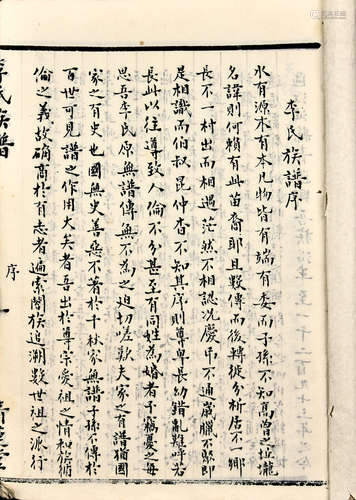 李氏族譜序
水有源木有本凡物皆有端有委而子孫不知高曾之坵壠
名諱則何賴有此苗裔耶且數傳而後轉徙分析居不一鄉
長不一村出而相遇茫然不相認況慶吊不通歲臘不聚即
是相識而伯叔昆仲杳不知其序則尊卑長幼錯亂難呼若
長此以往導致人倫不分甚至有同姓為婚者予竊憂之每
思吾李氏原無譜傳無不為之迫切嗟歎夫家之有譜猶國
家之有史也國無史善惡不著於千秋家無譜子孫不傳於
百世可見譜之作用大矣者吾出於尊宗愛祖之情和族術
倫之義故商於有志者遍索閤族追溯數世祖之派行
李氏族譜
序